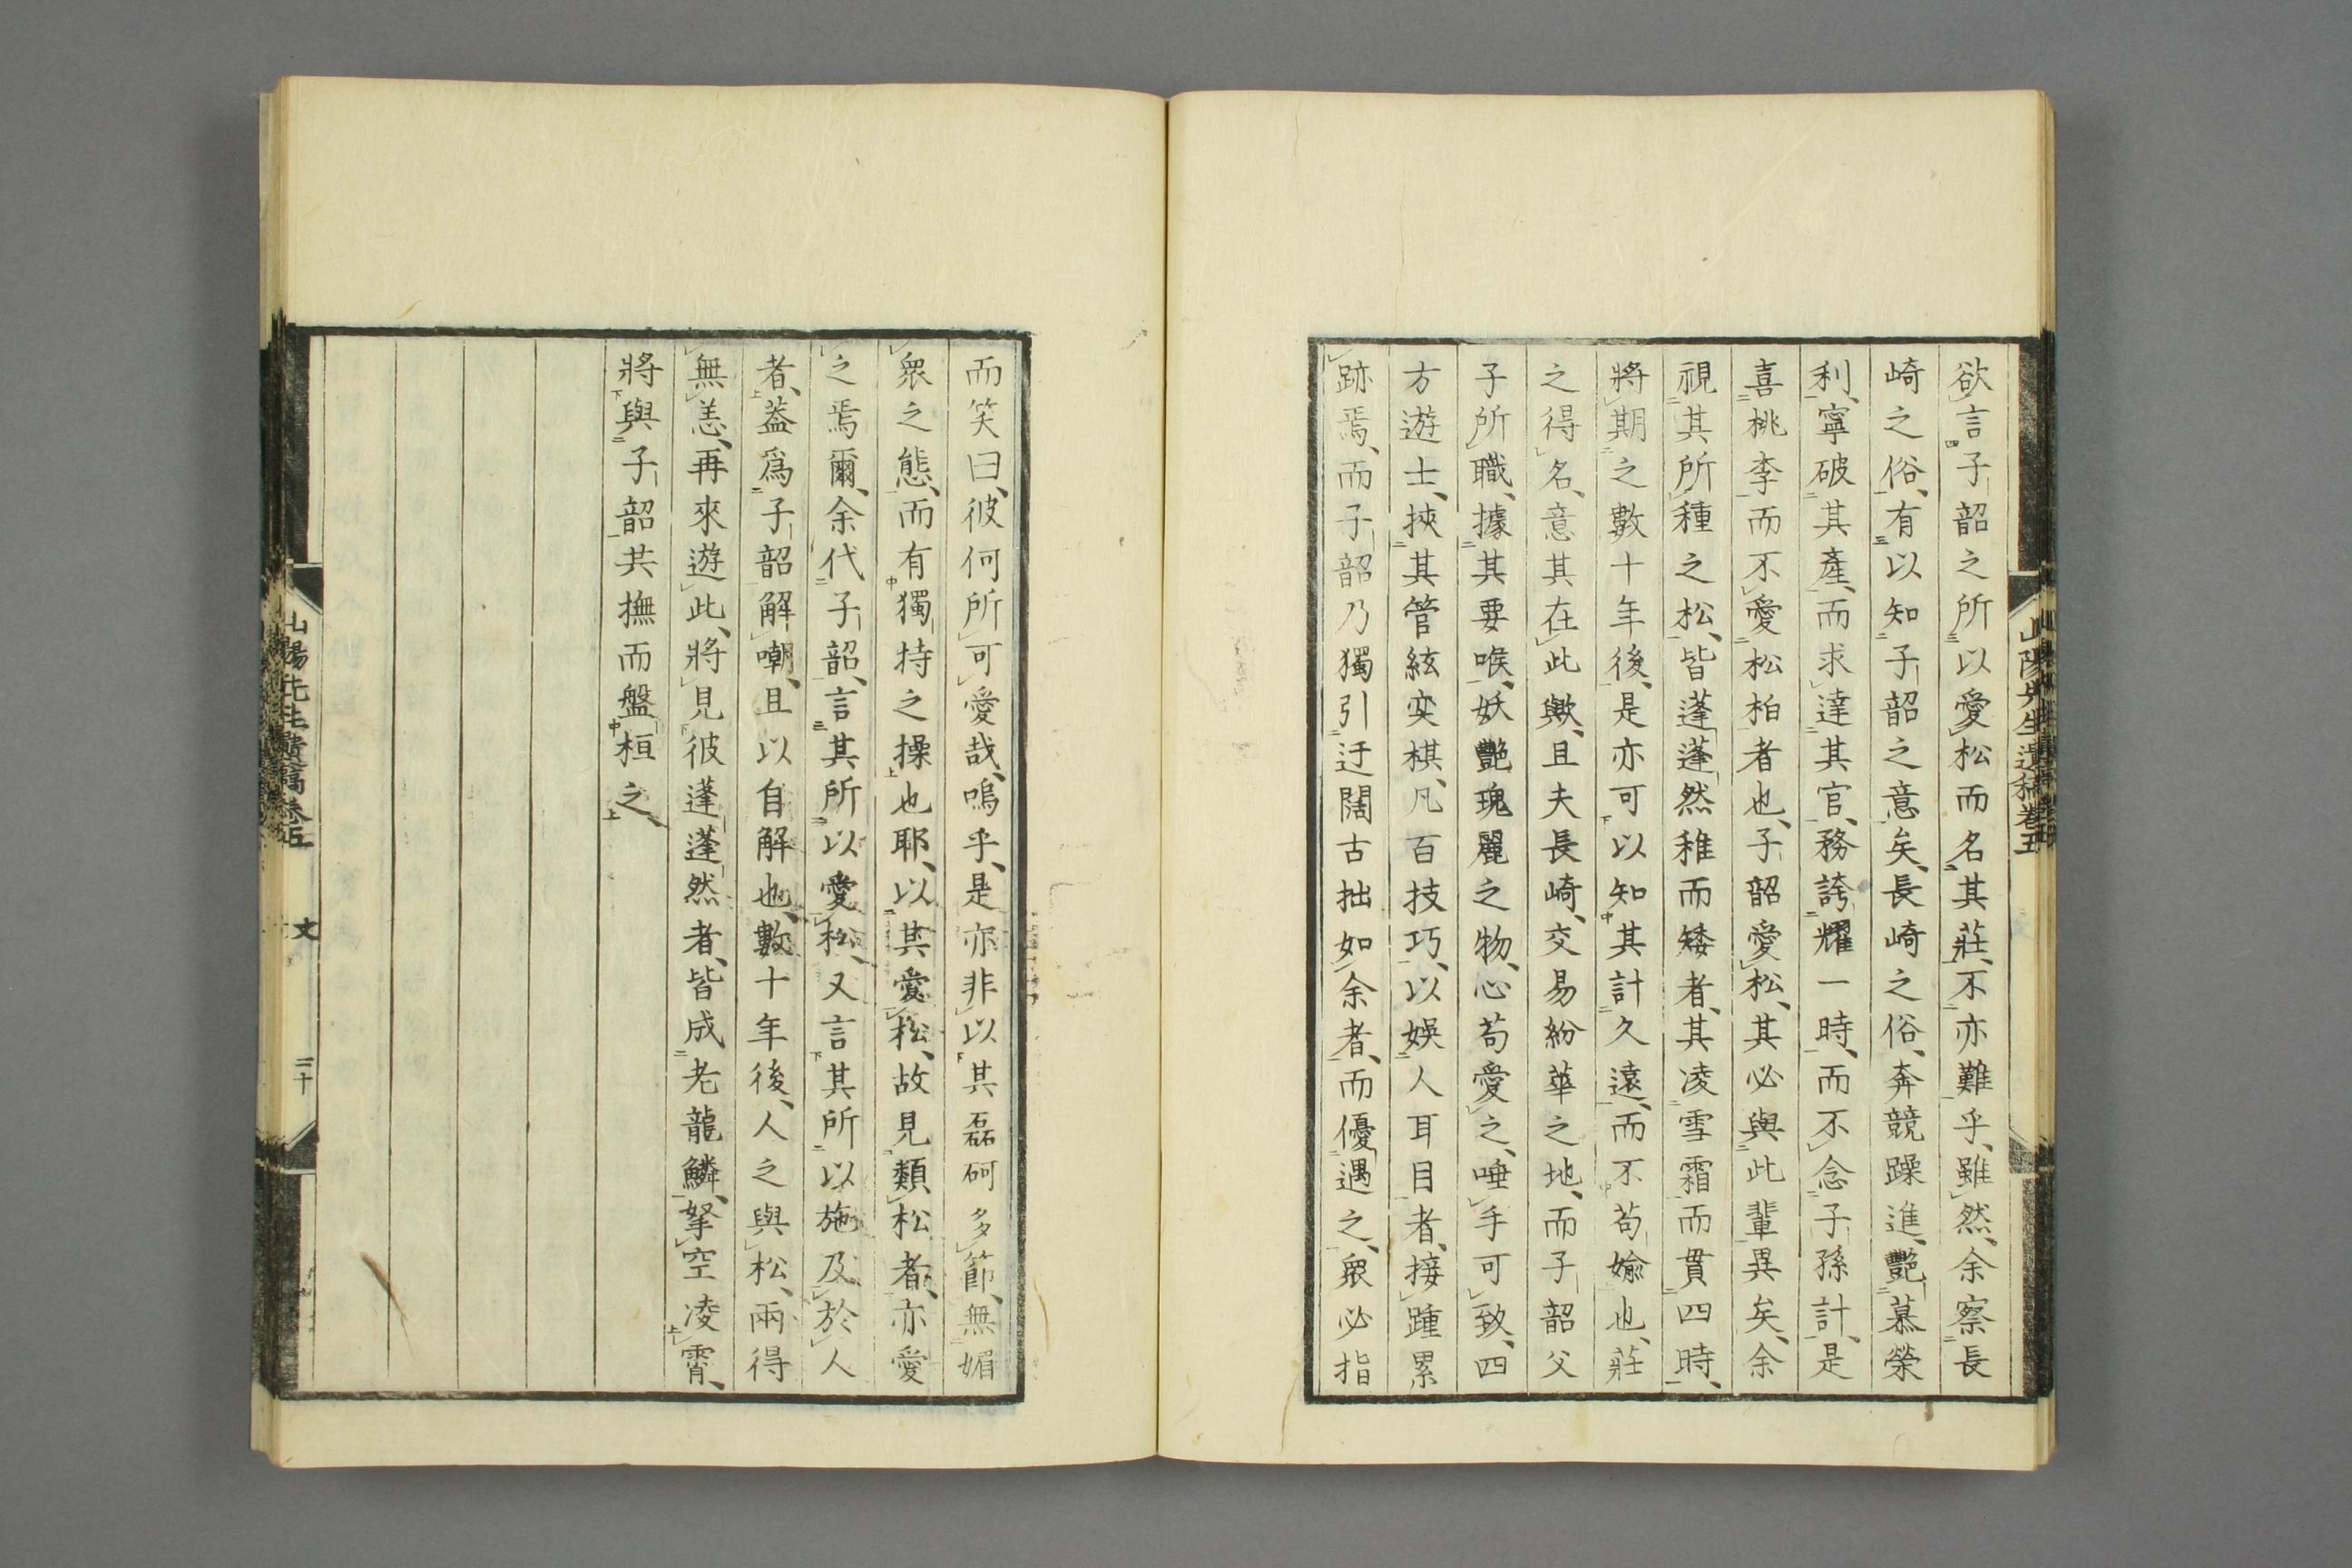 欲言子韶之所以愛松而名其莊、不亦難乎、雖然、余察長
崎之俗、有以知子韶之意矣、長崎之俗、奔競躁進、艷慕榮
利、寧破其產、而求達其官、務誇耀一時、而不念子孫計、是
喜桃李而不愛松柏者也、子韶愛松、其必與此輩異矣、余
視其所種之松、皆蓬蓬然稚而矮者、其凌雪霜而貫四時、
將期之數十年後、是亦可以知其計久遠、而不苟媮也、莊
之得名、意其在此歟、且夫長崎、交易紛華之地、而子韶父
子所職、據其要喉、妖艷瑰麗之物、心苟愛之、唾手可致、四
方遊士、挾其管絃奕棋、凡百技巧、以娛人耳目者、接踵累
跡焉、而子韶乃獨引迂闊古拙如余者、而優遇之、衆必指
山陽先生遺稿卷五
而笑曰、彼何所可愛哉、嗚乎、是亦非以其磊砢多節、無媚
衆之態、而有獨持之操也耶、以其愛松、故見類松者、亦愛
之焉爾、余代子韶、言其所以愛松、又言其所以施及於人
者、蓋爲子韶解嘲、且以自解也、數十年後、人之與松、兩得
無恙、再來遊此、將見彼蓬蓬然者、皆成老龍鱗、拏空凌霄、
將與子韶共撫而盤桓之、
山陽先生遺稿卷五 文 三十